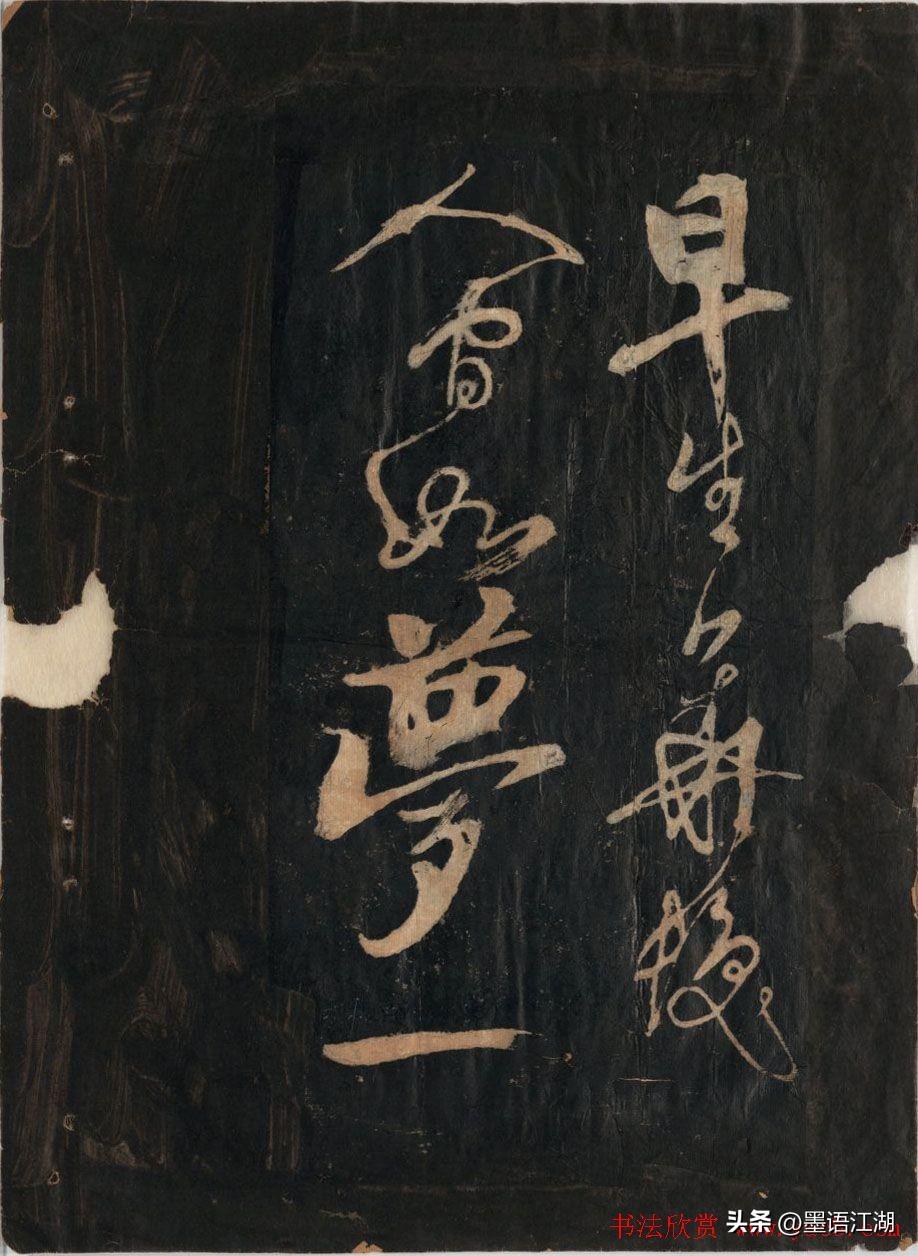 早生華髮
人間如夢一
书法欣赏
头条 @墨语江湖